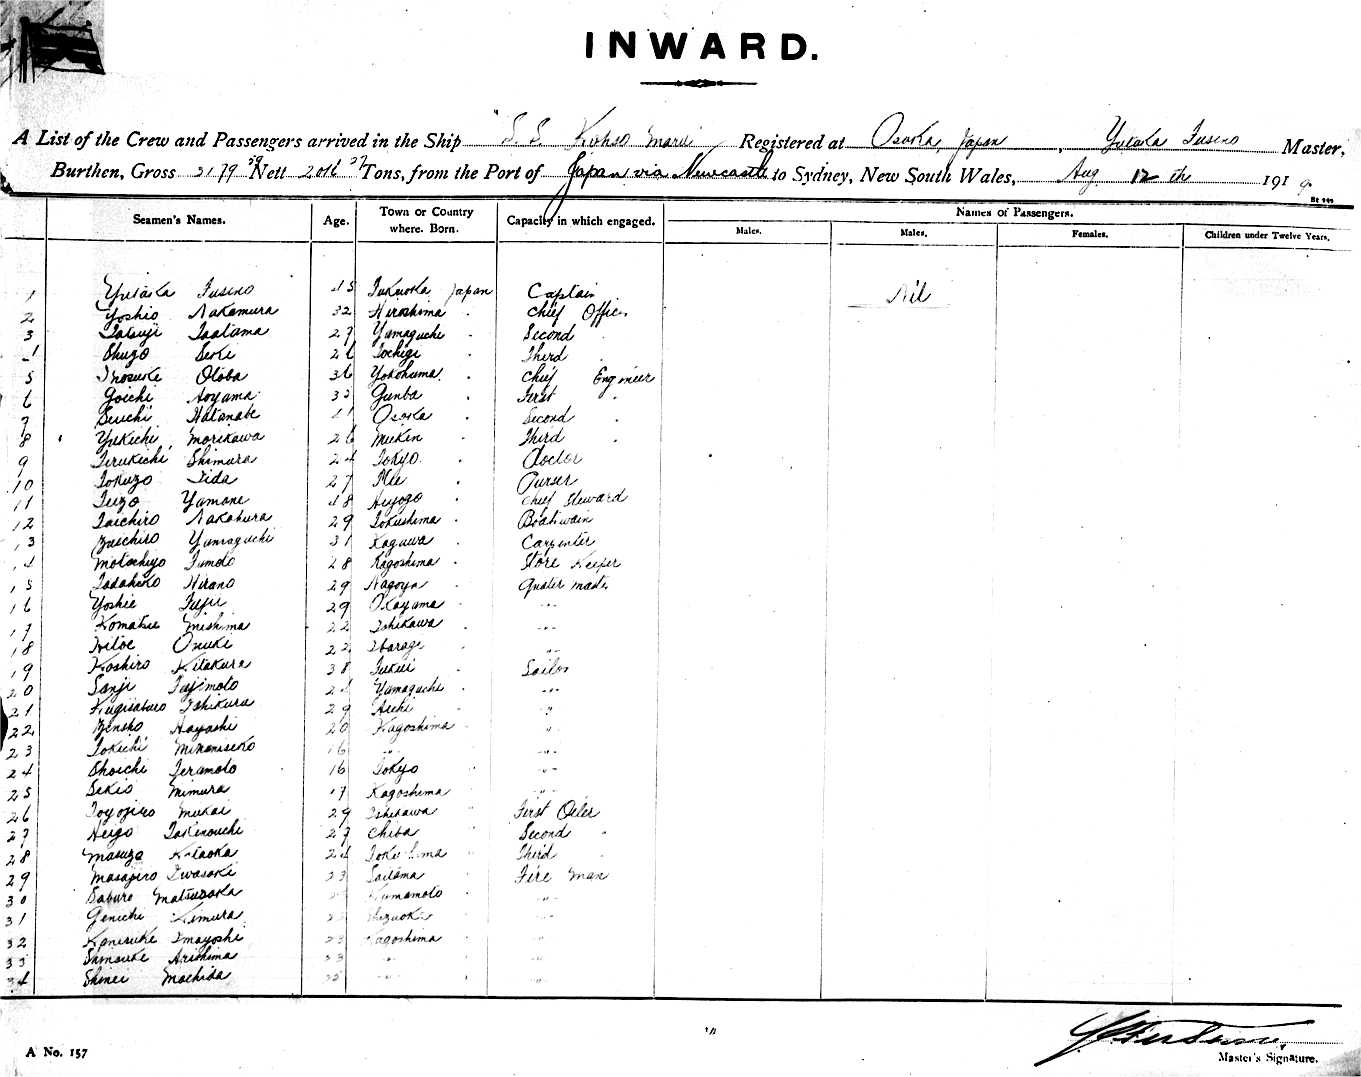 INWARD.
A List of the Crew and Passengers arrived in the Ship "S.S. Kohso Maru Registered at Osaka, Japan, Yutaka Fuseno Master,
Burthen, Gross 3179 29 Nett 2016 27 Tons, from the Port of Japan via Newcastle to Sydney, New South Wales, Aug 12th 1919
Seamen's Names. Age. Town or Country where. Born. Capacity in which engaged. Names of Passengers.
Males. Males. Females. Children under Twelve Years.
1 Yutaka Fuseno 45 Fukuoka Japan Captain Nil
2 Yoshio Nakamura 32 Hiroshima Chief Officer
3 Tatsuji 27 Yamaguchi Second
4 Shugo Seki 26 Tochigi Third
5 Inosuke Otoba 36 Yokohama Chief Engineer
6 Goichi Aoyama 32 Gunba First
7 Seiichi Watanabe 41 Osaka Second
8 Yukichi Morikawa 26 Third
9 Terukichi Shimura 24 Tokyo Doctor
10 Tokuzo Iida 27 Mie Purser
11 Yamane 48 Hiyogo Chief Steward
12 Taichiro Nakahara 29 Tokushima Boatswain
13 Yamaguchi 31 Kagawa Carpenter
14 Motochiyo Fumoto 28 Kagoshima Store Keeper
15 Tadahiko Hirano 29 Nagoya Quater master
16 Yoshie Fujii 29 Okayama "
17 Komatsu Mishima 22 Ishikawa "
18 Onuki 22 Ibarage "
19 Koshiro Kitakura 38 Fukui Sailor
20 Sanji Fujimoto 24 Yamaguchi "
21 Ishikura 29 Aichi "
22 Kensho Hayashi 20 Kagoshima "
23 Tokichi 16 " "
24 Shoichi Teramoto 16 Tokyo "
25 Sekio Mimura 17 Kagoshima "
26 Toyojiro Mukai 29 Ishikawa First Oiler
27 Heigo Takenouchi 27 Chiba Second
28 Masuzo Kataoka 24 Tokushima Third
29 Masajiro Iwasaki 23 Saitama Fire Man
30 Saburo Matsuoka Kumamoto "
31 Genichi Kimura Shizuoka "
32 Kanesuke Imayoshi 23 Kagoshima "
33 Arishima 23 " "
34 Shinei Machida 22 " "
A No. 157
Master's Signature.